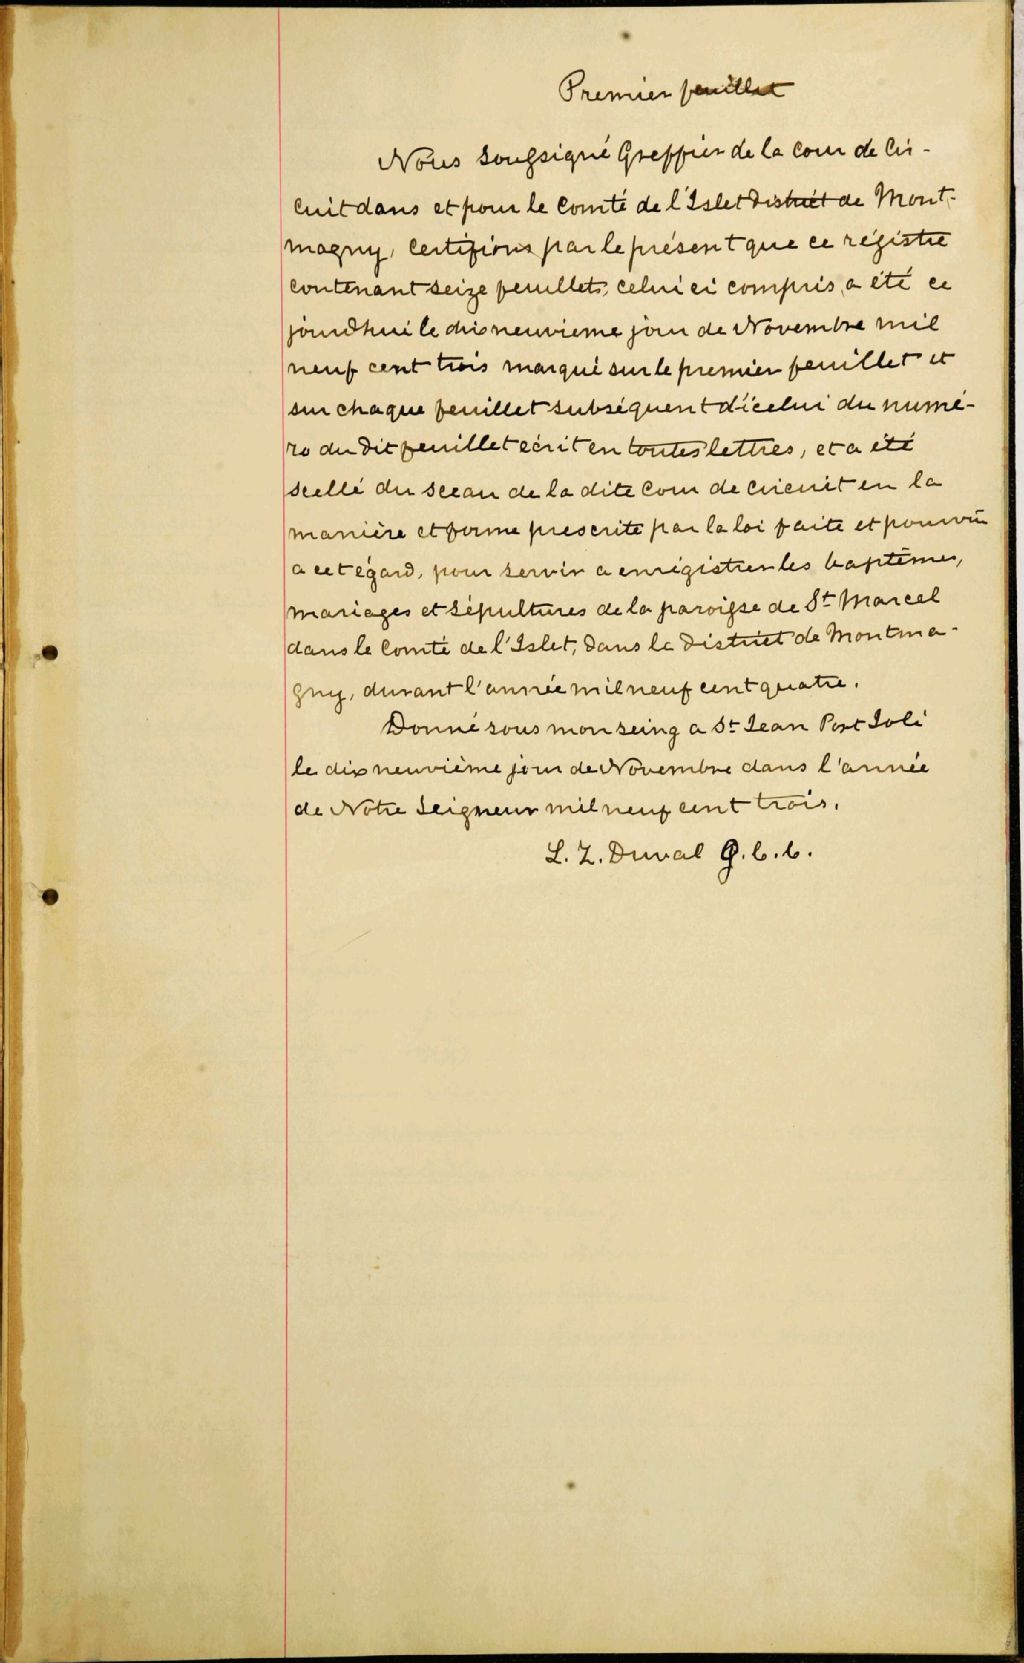 Premier feuillet
Nous Soussigné Greffier de la Cour de Cir-
cuit dans et pour le Comté de l'Islet District de Mont-
magny, certifions par le présent que ce régistre
contenant seize feuillets, celui ci compris, a été ce
jourdhui le dixneuvieme jour de Novembre mil
neuf cent trois marqué sur le premier feuillet et
sur chaque feuillet subséquent d'icelui du numé-
ro du dit feuillet écrit en toutes lettres, et a été
scellé du sceau de la dite Cour de circuit en la
manière et forme prescrite par la loi faite et pourvue
a cet égard, pour servir a enrégistrer les baptêmes,
mariages et sépultures de la paroisse de St Marcel
dans le Comté de l'Islet, dans le District de Montma-
gny, durant l'année mil neuf cent quatre.
Donné sous mon seing a St Jean Port Joli
le dixneuvième jour de Novembre dans l'année
de Notre Seigneur mil neuf cent trois.
L. Z. Duval G. C. C.